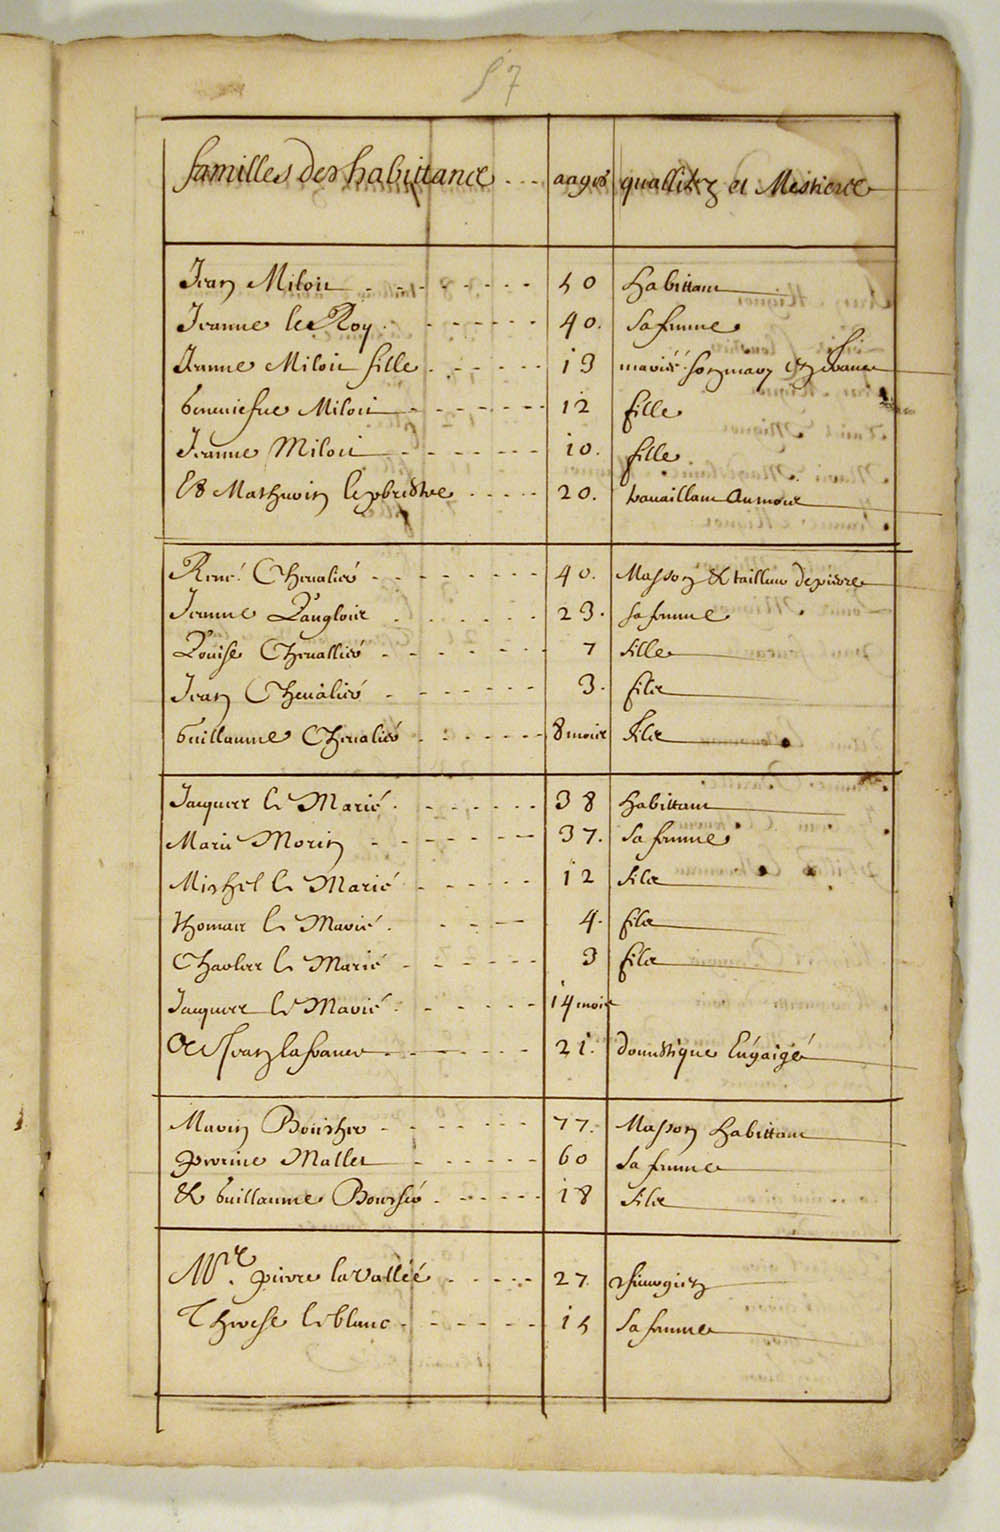 57
familles des habittans - - - aages quallitez et Mestiers
Jean Miloir - - - - - - - - 50 habittant
Jeanne le Roy - - - - - - - 40. Sa femme
Jeanne Miloir fille - - - - - - 13 mariée son mary en france
Genneviefue Miloir - - - - - - 12 fille
Jeanne Miloir - - - - - - 10. fille
Et Mathurin le prestre - - - - - 20. trauaillant
René Cheualier - - - - - - - - 40. Masson & tailleur de pierre
Jeanne Langlois - - - - - - 23. sa femme
Louise Cheuallier - - - - - - - 7 fille
Jean Cheualier - - - - - - - 3. fils
Guillaume Cheualier - - - - - - 8 mois fils
Jacques le Marié - - - - - - 38 habittant
Marie Morin - - - - - - 37. Sa femme
Michel le Marié - - - - - - 12 fils
thomas le Marié - - - 4. fils
Charles le Marié - - - - - - 3 fils
Jacques le Marié - - - - - 14 mois
Et Jean la france - - - - - - - 21. domestique Engaigé
Marin Boucher - - - - - - - 77. Masson habittant
perrine Mallet - - - - - - 60 sa femme
& Guillaume Boucher - - - - - - 18 fils
Mre. pierre la Vallée - - - - - 27. chirurgien
Therese le blanc - - - - - - - 15 sa femme